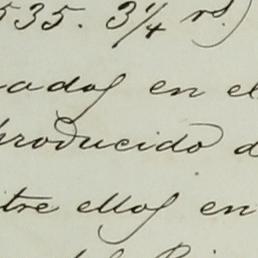 535. 3 1/4 rs.)
ados en el
producido d
tre ellos en